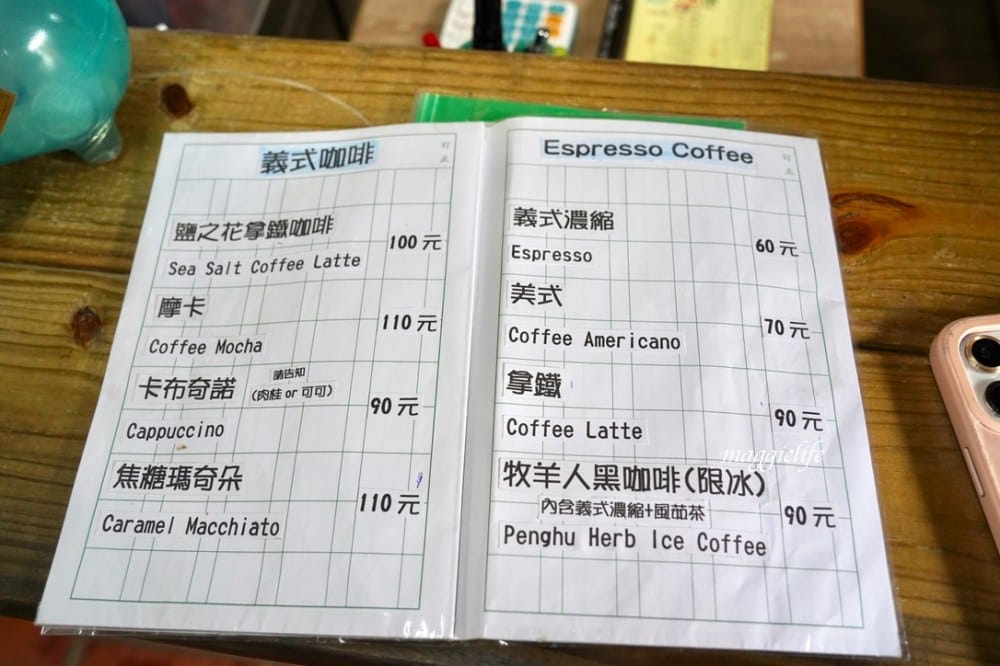 義式咖啡
鹽之花拿鐵咖啡
100 元
Sea Salt Coffee Latte
摩卡
110 元
Coffee Mocha
卡布奇諾
請告知
(肉桂 or 可可)
90 元
Cappuccino
焦糖瑪奇朵
110 元
Caramel Macchiato
Espresso Coffee
義式濃縮
60 元
Espresso
美式
70 元
Coffee Americano
拿鐵
90 元
Coffee Latte
maggielife
牧羊人黑咖啡(限冰)
內含義式濃縮+風茹茶
90 元
Penghu Herb Ice Coffee